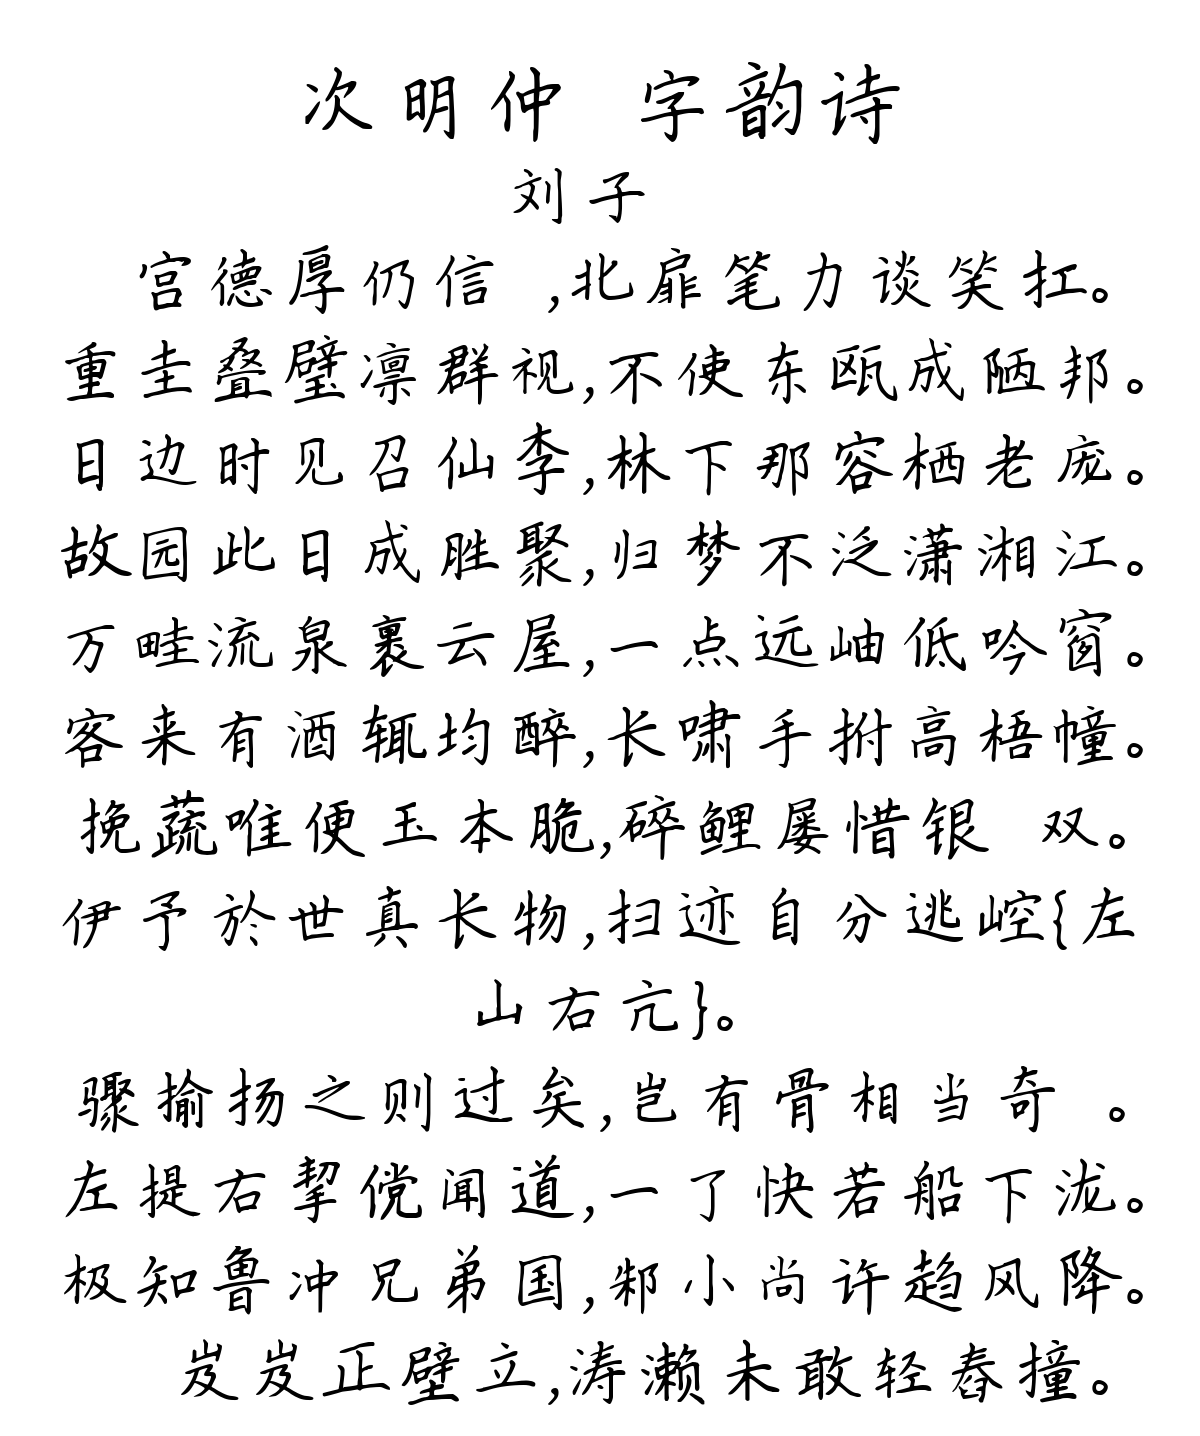 次明仲 字韵诗
刘子
宫德厚仍信 ,北扉笔力谈笑扛。
重圭叠璧凛群视,不使东瓯成陋邦。
日边时见召仙李,林下那容栖老庞。
故园此日成胜聚,归梦不泛潇湘江。
万畦流泉裹云屋,一点远岫低吟窗。
客来有酒辄均醉,长啸手拊高梧幢。
挽蔬唯便玉本脆,碎鲤屡惜银 双。
伊予於世真长物,扫迹自分逃崆{左
山右亢}。
骤揄扬之则过矣,岂有骨相当奇 。
左提右挈傥闻道,一了快若船下泷。
极知鲁冲兄弟国,邾小尚许趋风降。
岌岌正壁立,涛濑未敢轻舂撞。